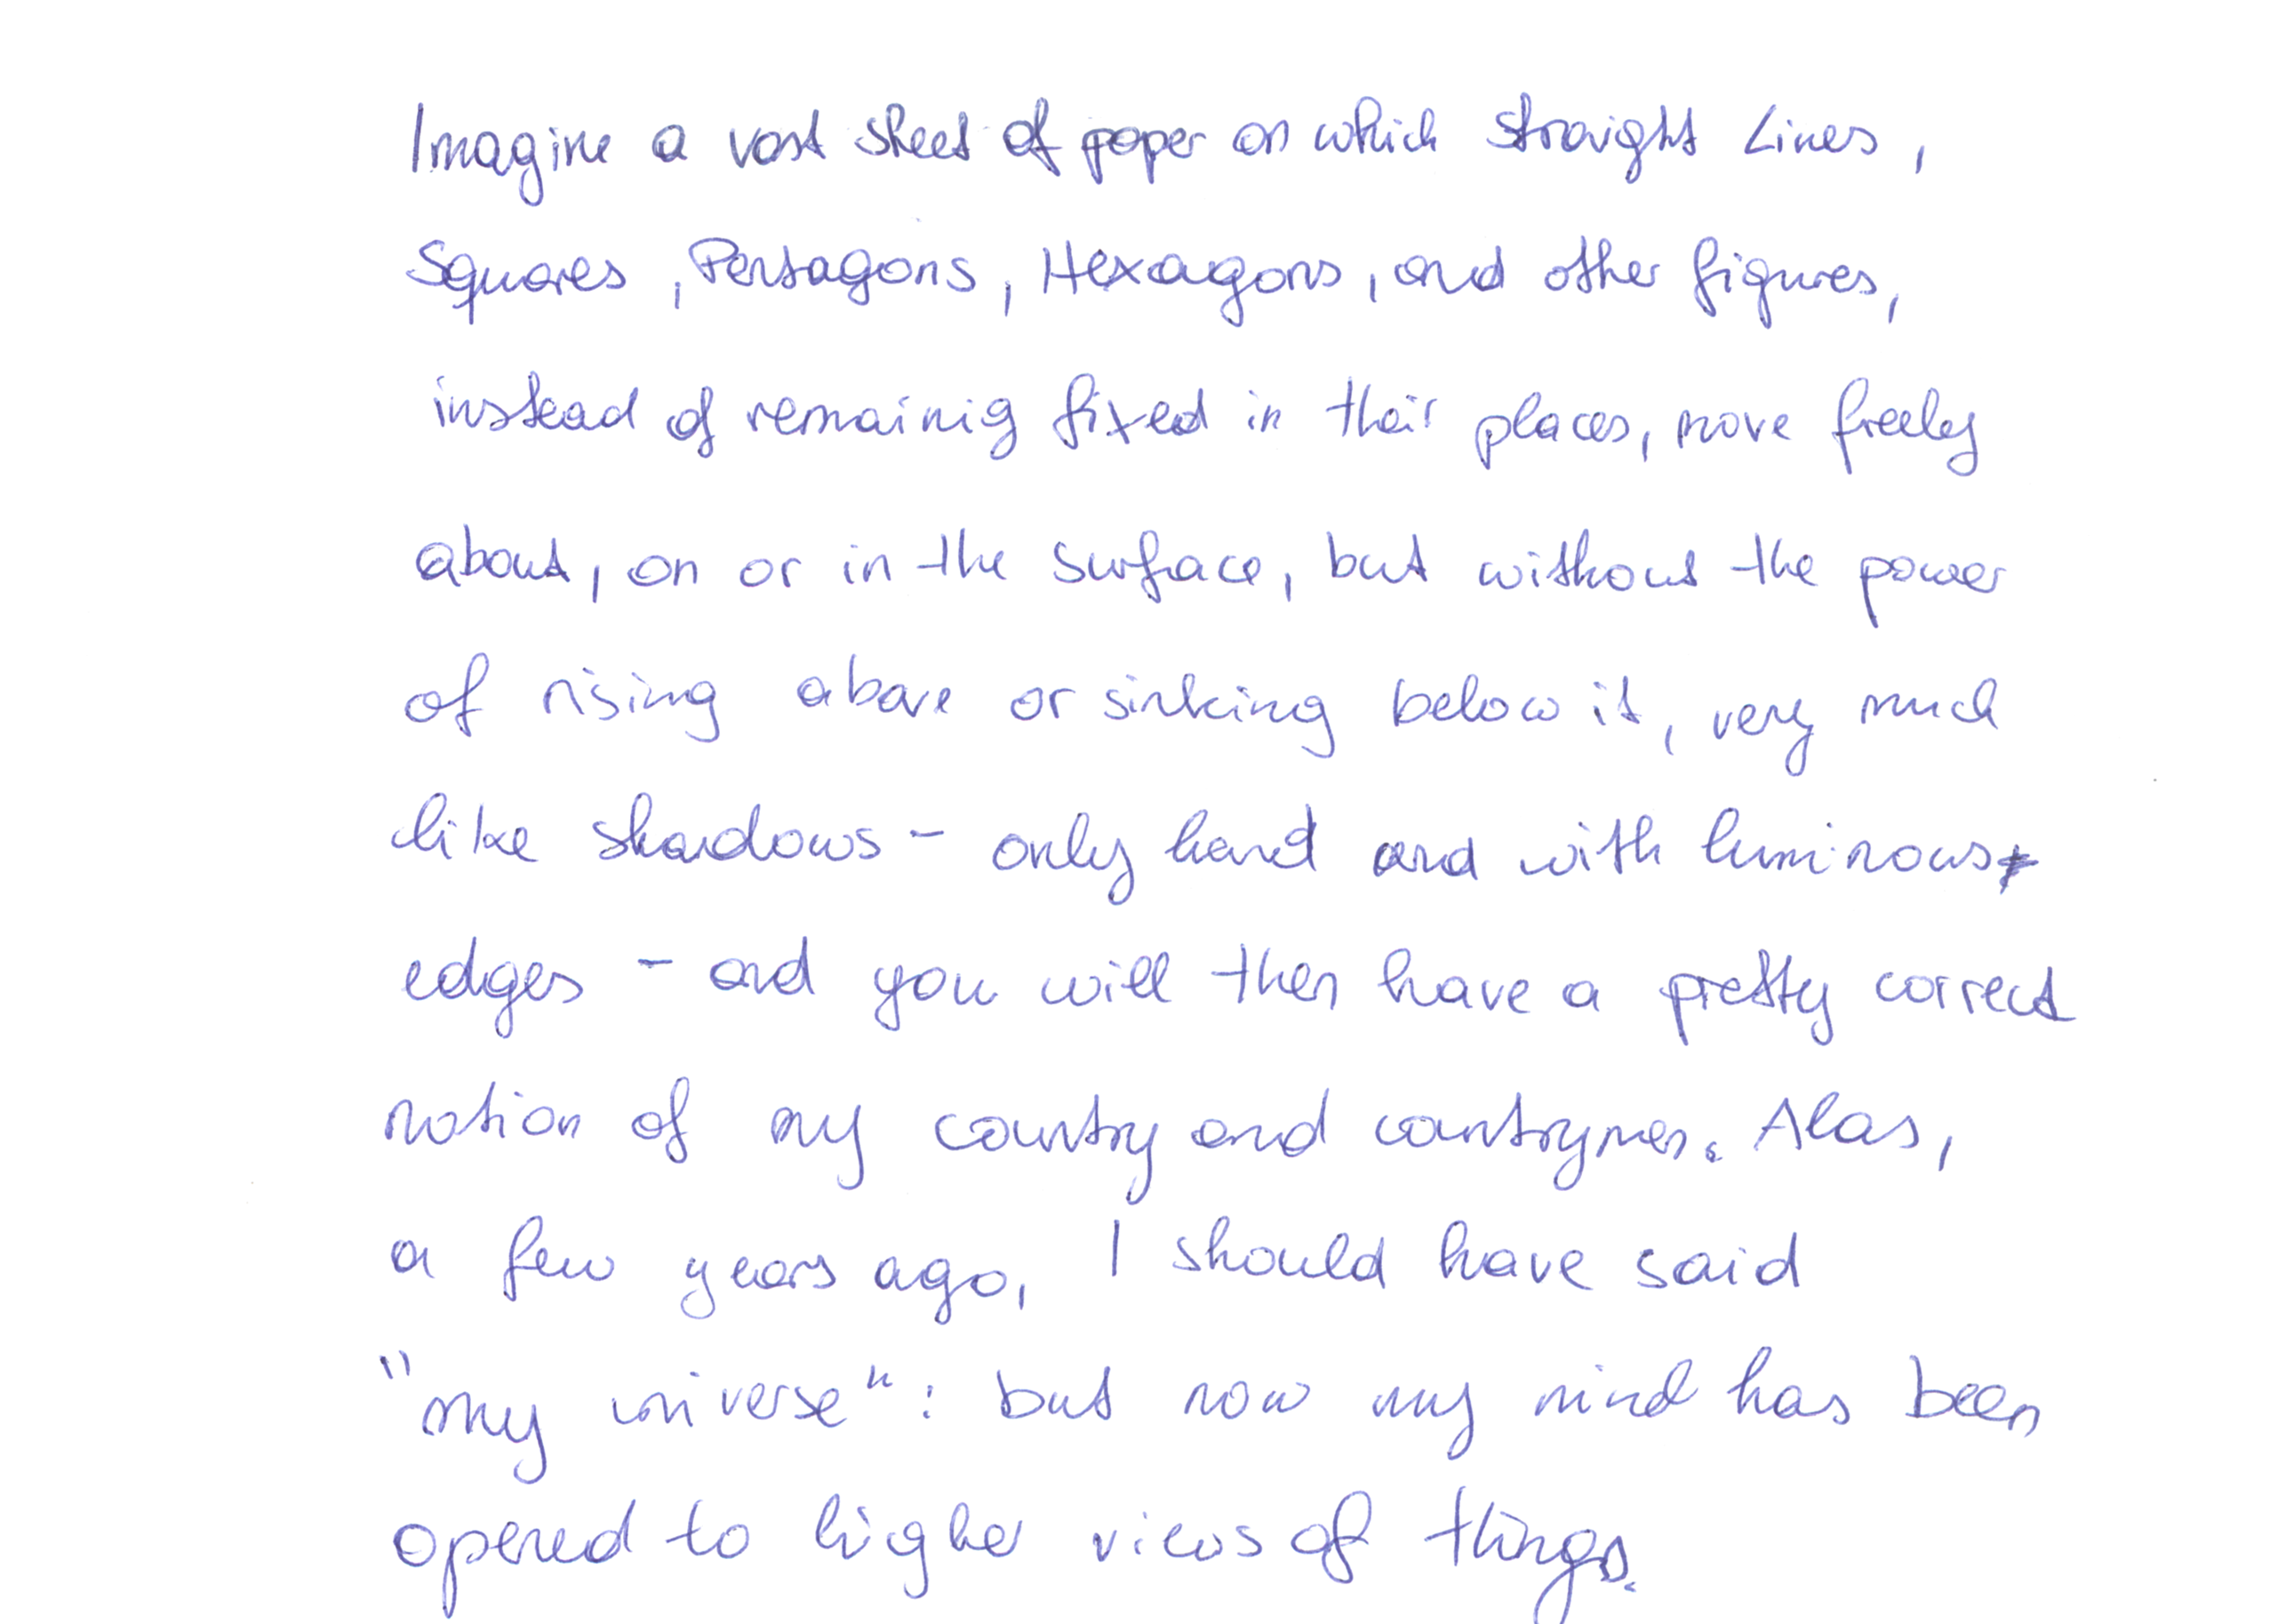 Imagine a vast sheet of paper on which straight Lines,
Squares, Pentagons, Hexagons, and other figures,
instead of remainig fixed in their places, move freely
about, on or in the surface, but without the power
of rising above or sinking below it, very much
like shadows - only hard and with luminous
edges - and you will then have a pretty correct
notion of my country and countrymen. Alas,
a few years ago, I should have said
"my universe": but now my mind has been
opened to higher views of things.